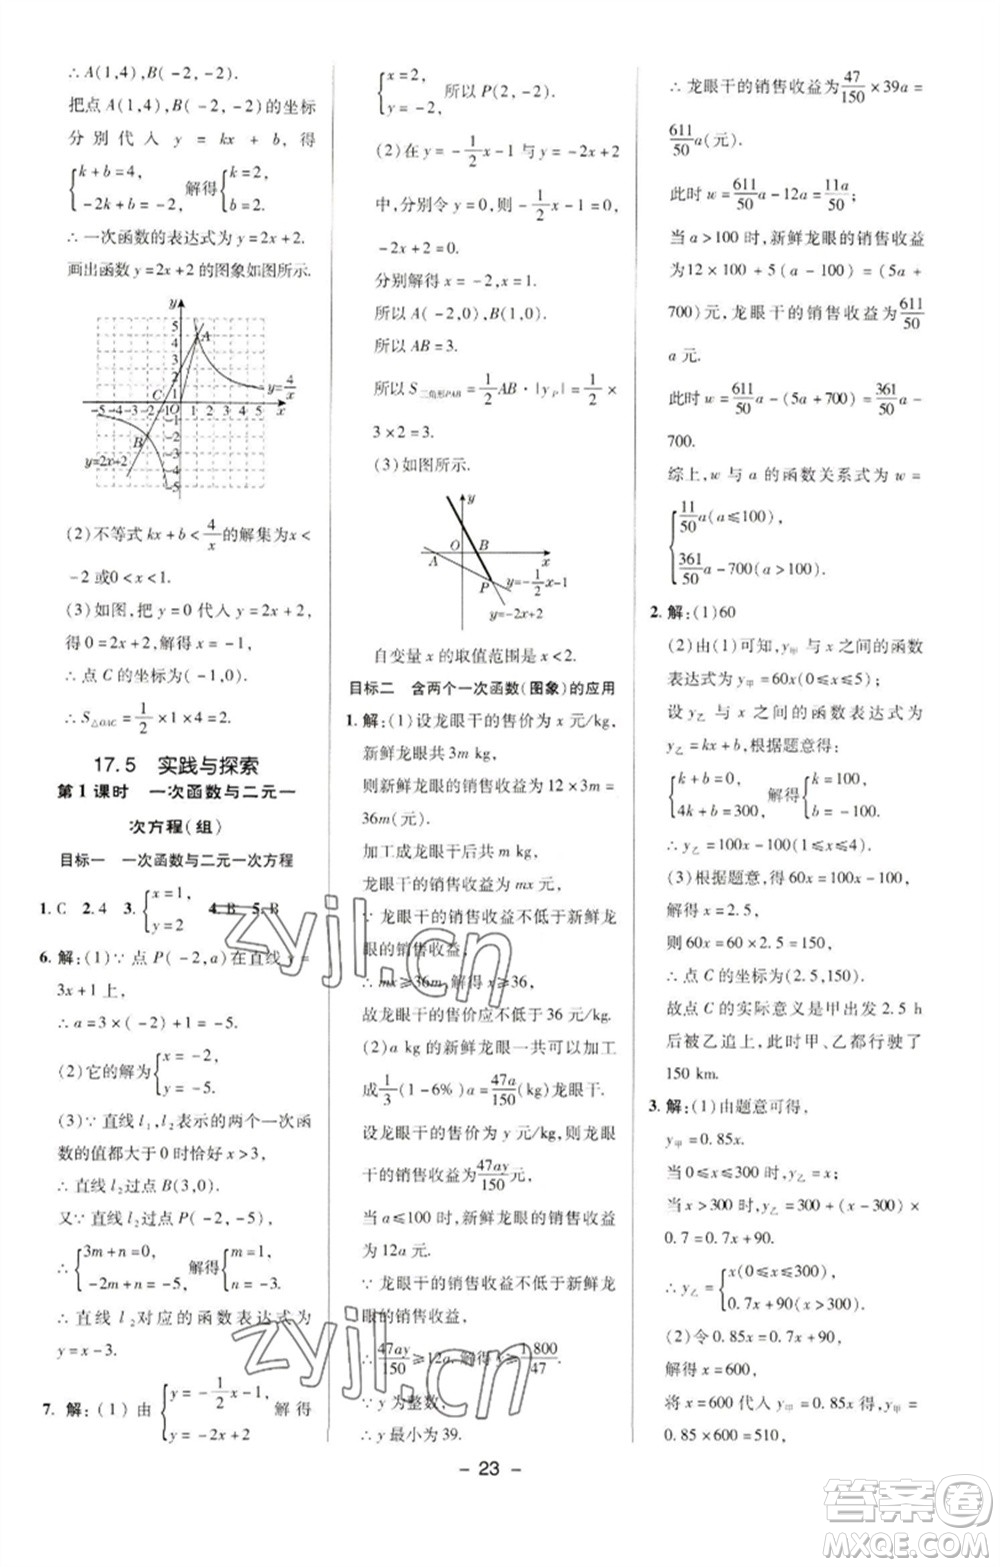 ∴ A(1,4), B(-2,-2).
把点 A(1,4), B(-2,-2)的坐标
分别代入 y = kx + b, 得
{k+b=4, -2k+b=-2, 解得 {k=2, b=2.
∴ 一次函数的表达式为 y=2x+2.
画出函数 y=2x+2 的图象如图所示.
y
5
4
3
2
1
A
C
y=4/x
-5-4-3-2-1 O 1 2 3 4 5 x
-1
-2
-3
-4
-5
B
y=2x+2
(2)不等式 kx+b<4/x 的解集为x<
-2 或0<x<1.
(3)如图,把 y=0 代入 y=2x+2,
得 0=2x+2,解得 x=-1,
∴ 点 C 的坐标为(-1,0).
∴ S△OAC=1/2×1×4=2.
17.5 实践与探索
第1课时 一次函数与二元一
次方程(组)
目标一 一次函数与二元一次方程
1.C 2.4 3.{x=1, y=2 4.B 5.B
6.解:(1)∵ 点 P(-2,a)在直线 y=
3x+1 上,
∴ a=3×(-2)+1=-5.
(2)它的解为{x=-2, y=-5.
(3)∵ 直线 l₁,l₂表示的两个一次函
数的值都大于 0 时恰好 x>3,
∴ 直线 l₂过点 B(3,0).
又∵ 直线 l₂过点 P(-2,-5),
∴ {3m+n=0, -2m+n=-5, 解得{m=1, n=-3.
∴ 直线 l₂对应的函数表达式为
y=x-3.
7.解:(1)由{y=-1/2x-1, y=-2x+2 解得
{x=2, y=-2, 所以 P(2,-2).
(2)在 y=-1/2x-1 与 y=-2x+2
中,分别令 y=0,则-1/2x-1=0,
-2x+2=0,
分别解得 x=-2,x=1.
所以 A(-2,0),B(1,0).
所以 AB=3.
所以 S三角形PAB=1/2AB·|yP|=1/2×
3×2=3.
(3)如图所示.
y
O
B
A
x
P
y=-1/2x-1
y=-2x+2
自变量 x 的取值范围是 x<2.
目标二 含两个一次函数(图象)的应用
1.解:(1)设龙眼干的售价为 x 元/kg,
新鲜龙眼共 3m kg,
则新鲜龙眼的销售收益为 12×3m=
36m(元).
加工成龙眼干后共 m kg,
龙眼干的销售收益为 mx 元.
∵ 龙眼干的销售收益不低于新鲜龙
眼的销售收益,
∴ mx≥36m, 解得 x≥36,
故龙眼干的售价应不低于 36 元/kg.
(2)a kg 的新鲜龙眼一共可以加工
成1/3(1-6%)a=47a/150(kg)龙眼干.
设龙眼干的售价为 y 元/kg,则龙眼
干的销售收益为47ay/150元,
当 a≤100 时,新鲜龙眼的销售收益
为 12a 元.
∵ 龙眼干的销售收益不低于新鲜龙
眼的销售收益,
∴ 47ay/150≥12a. 解得 y≥1 800/47.
∵ y 为整数,
∴ y 最小为 39.
∴ 龙眼干的销售收益为47/150×39a=
611/50a(元).
此时 w=611/50a-12a=11a/50;
当 a>100 时,新鲜龙眼的销售收益
为12×100+5(a-100)=(5a+
700)元,龙眼干的销售收益为611/50
a 元.
此时 w=611/50a-(5a+700)=361/50a-
700.
综上,w 与 a 的函数关系式为 w=
{11/50a(a≤100), 361/50a-700(a>100).
2.解:(1)60
(2)由(1)可知,y甲 与 x 之间的函数
表达式为 y甲=60x(0≤x≤5);
设 y乙 与 x 之间的函数表达式为
y乙=kx+b,根据题意得:
{k+b=0, 4k+b=300, 解得{k=100, b=-100.
∴ y乙=100x-100(1≤x≤4).
(3)根据题意,得 60x=100x-100,
解得 x=2.5,
则 60x=60×2.5=150,
∴ 点 C 的坐标为(2.5,150).
故点 C 的实际意义是甲出发 2.5 h
后被乙追上,此时甲、乙都行驶了
150 km.
3.解:(1)由题意可得,
y甲=0.85x.
当 0≤x≤300 时,y乙=x;
当 x>300 时,y乙=300+(x-300)×
0.7=0.7x+90,
∴ y乙={x(0≤x≤300), 0.7x+90(x>300).
(2)令 0.85x=0.7x+90,
解得 x=600,
将 x=600 代入 y甲=0.85x 得,y甲=
0.85×600=510,
- 23 -
zyjl.cn
zyjl.cn
答案圈
MXQE.COM